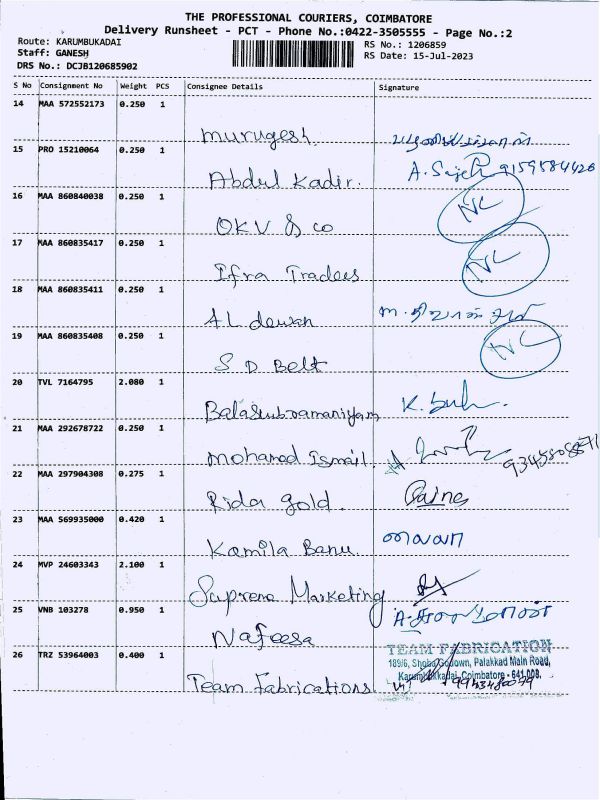 THE PROFESSIONAL COURIERS, COIMBATORE
Delivery Runsheet - PCT - Phone No.:0422-3505555 - Page No.:2
Route: KARUMBUKADAI
RS No.: 1206859
Staff: GANESH
RS Date: 15-Jul-2023
DRS No.: DCJB120685902
S No Consignment No Weight PCS Consignee Details Signature
14 MAA 572552173 0.250 1
Murugesh
15 PRO 15210064 0.250 1
Abdul Kadir. A. 9159584420
16 MAA 860840038 0.250 1
OKV & co NC
17 MAA 860835417 0.250 1
Ifra Traders NC
18 MAA 860835411 0.250 1
AL dewan
19 MAA 860835408 0.250 1
S D Belt NC
20 TVL 7164795 2.080 1
Balasubramaniyam K.
21 MAA 292678722 0.250 1
Mohamed Ismail.
22 MAA 297904308 0.275 1
Rida gold.
23 MAA 569935000 0.420 1
Kamila Banu.
24 MVP 24603343 2.100 1
Supreme Marketing
25 VNB 103278 0.950 1
Nafeesa
26 TRZ 53964003 0.400 1
TEAM FABRICATION
189/6, Shoba Godown, Palakkad Main Road,
Karumbukkadai, Coimbatore - 641 008.
Team Fabrications